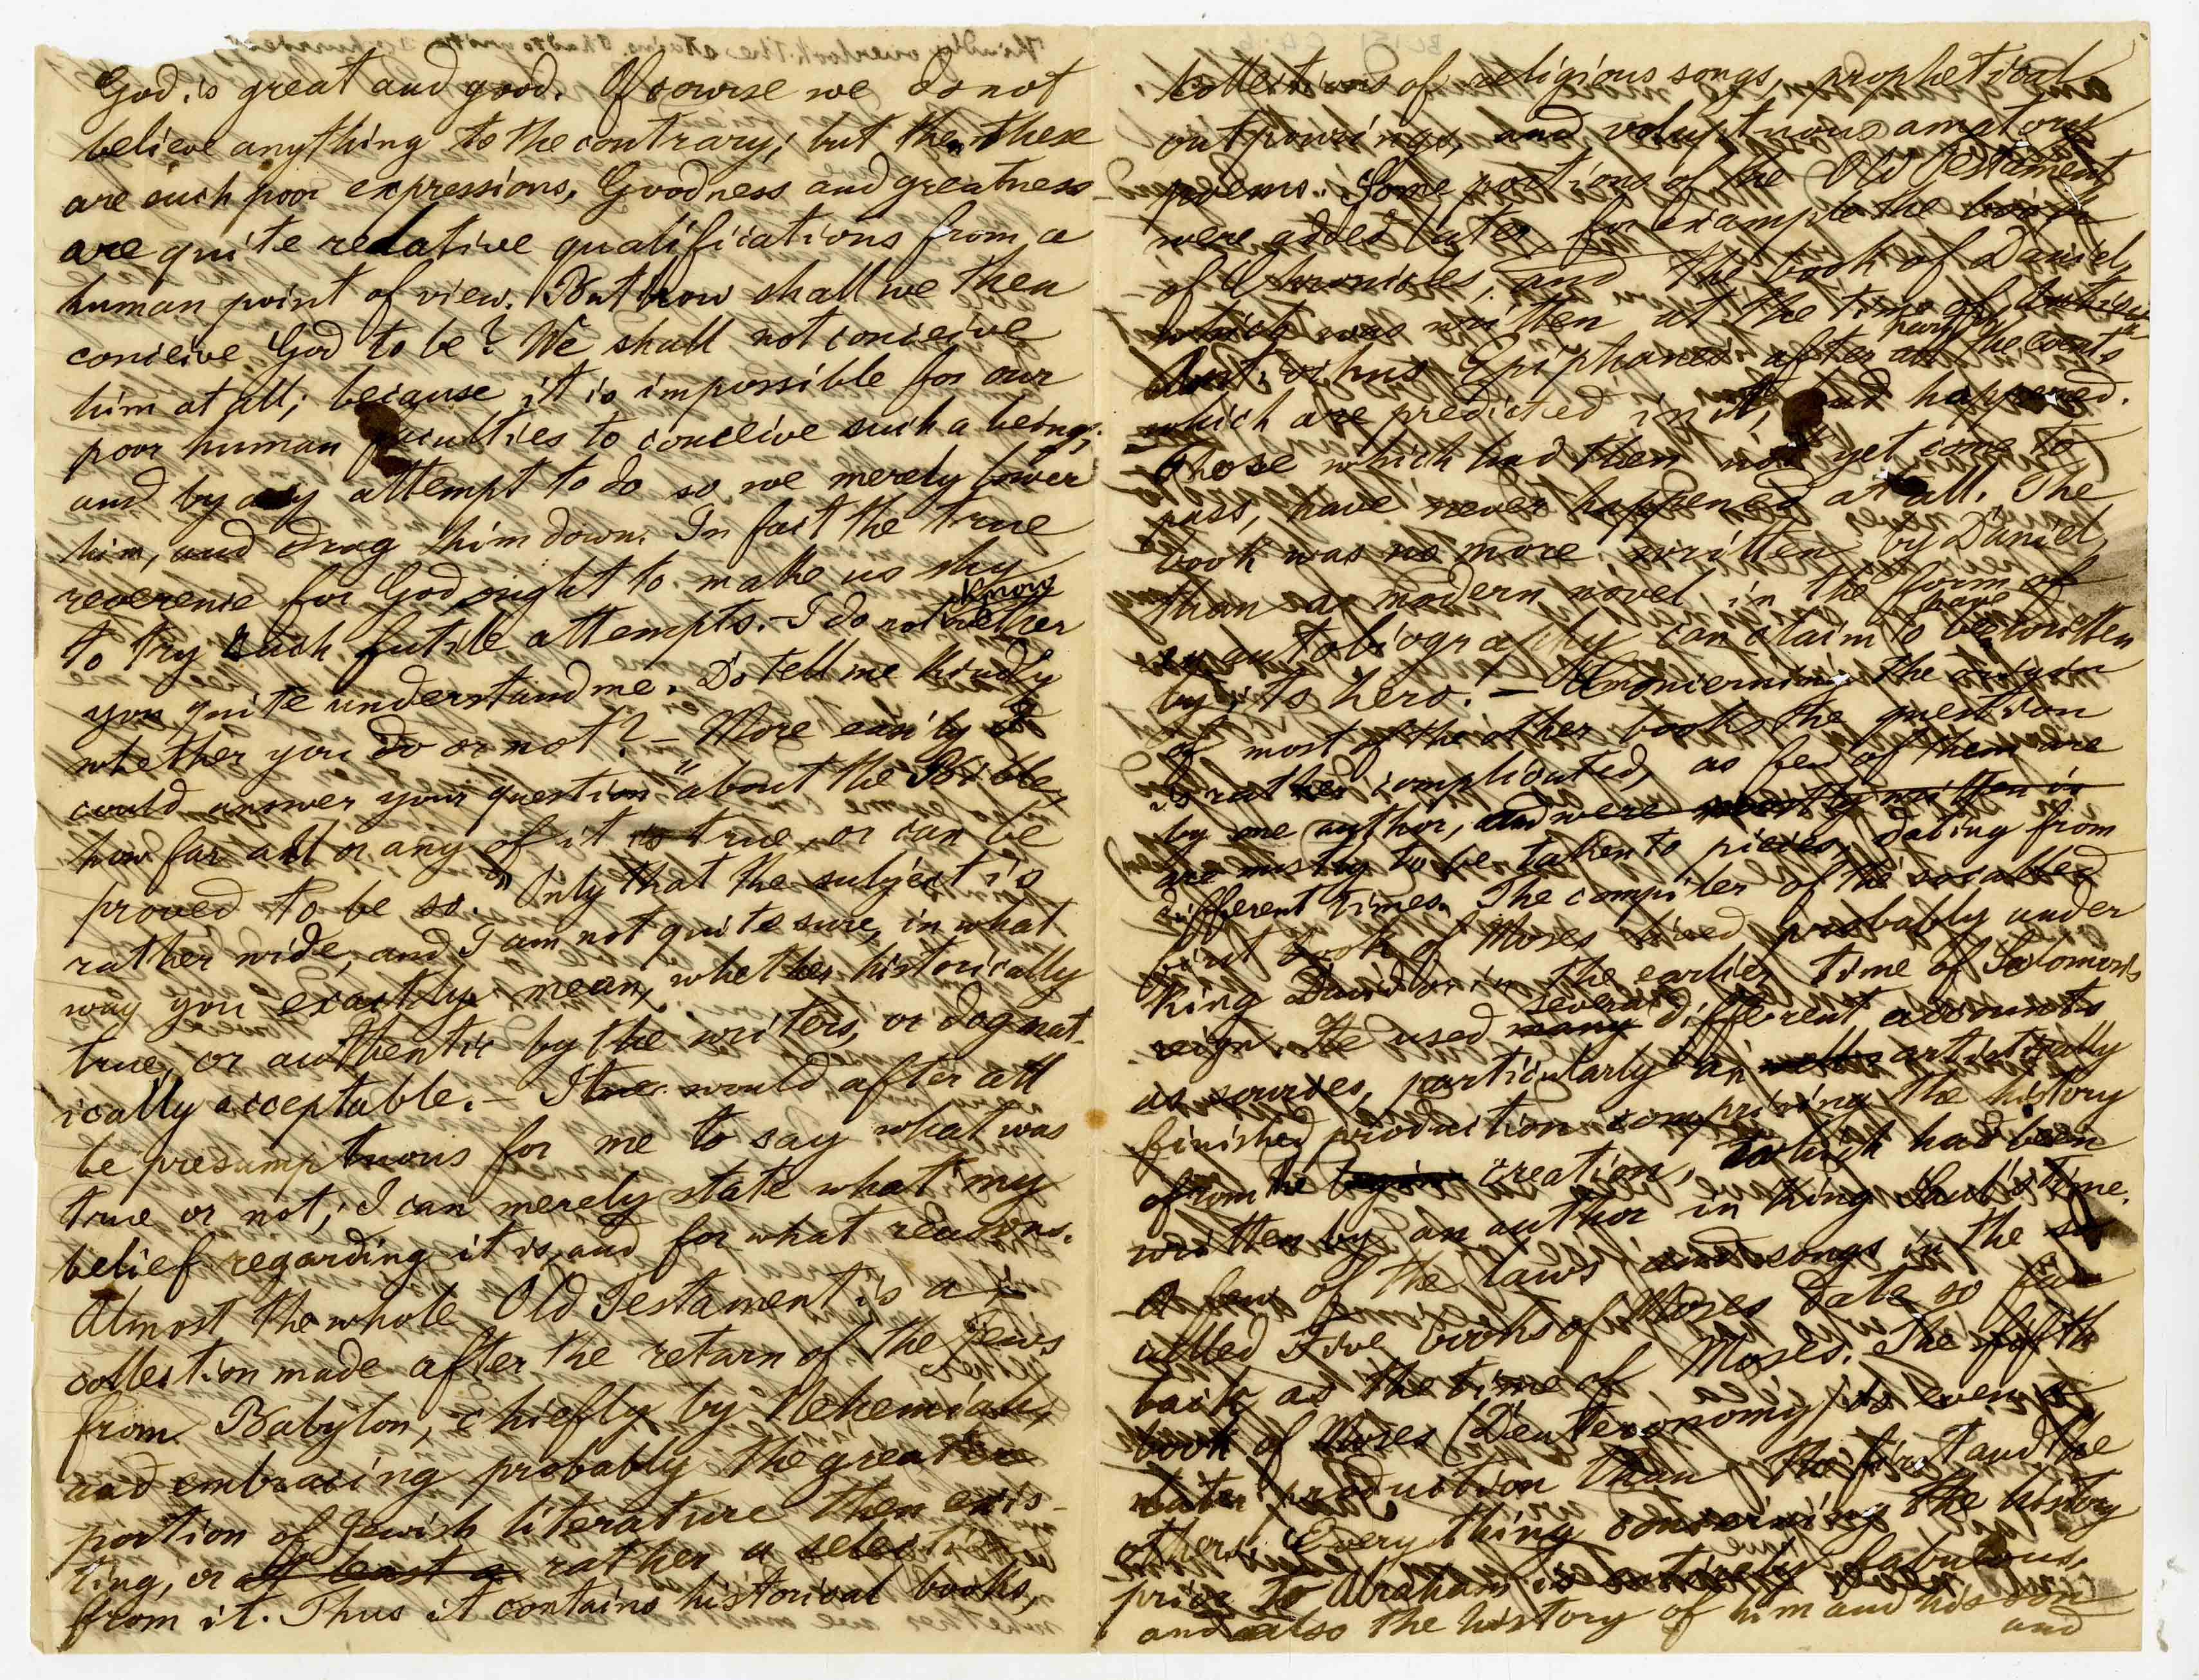 God is great and good. Of course we do not
believe anything to the contrary; but then these
are such poor expressions, Goodness and greatness
are quite relative qualifications from a
human point of view. But how shall we then
conceive God to be? We shall not conceive
him at all; because it is impossible for our
poor human faculties to conceive such a being;
and by any attempt to do so we merely lower
him, and drag him down. In fact the true
reverence for God ought to make us shy
to try such futile attempts. - I do not know whether
you quite understand me. Do tell me kindly
whether you do or not? - More easily I
could answer your question "about the Bible,
how far all or any of it is true or can be
proved to be so." Only that the subject is
rather wide, and I am not quite sure, in what
way you exactly mean, whether historically
true, or authentic by the writers, or dogmat-
ically acceptable. - It would after all
be presumptuous for me to say what was
true or not; I can merely state what my
belief regarding it is, and for what reasons.
Almost the whole Old Testament is a
collection made after the return of the Jews
from Babylon, chiefly by Nehemiah,
and embracing probably the greater
portion of Jewish literature then exis-
ting, or at least a rather a selection
from it. Thus it contains historical books,
collections of religious songs, prophetical
outpourings, and voluptuous amatory
poems. Some portions of the Old Testament
were added later, for example the books
of Chronicles, and the book of Daniel,
which was written at the time of
Antiochus Epiphanes after many of the events
which are predicted in it, had happened.
Those which had then not yet come to
pass, have never happened at all. The
book was no more written by Daniel,
than a modern novel in the form of
an autobiography can claim to have been written
by its hero! - Concerning the origin
of most of the other books the question
is rather complicated, as few of them are
by one author, and were mostly written in
are mostly to be taken to pieces, dating from
different times. The compiler of the so called
first book of Moses lived probably under
King David or in the earlier time of Solomon's
reign. He used many several different accounts
as sources, particularly an artistically
finished production comprising the history
from the creation, which had been
written by an author in King Saul's time.
A few of the laws and songs in the so
called Five books of Moses date so far
back as the time of Moses. The fifth
book of Moses (Deuteronomy) is even a
later production than the first and the
others. Everything concerning the history
prior to Abraham is entirely fabulous,
and also the history of him and his son
and